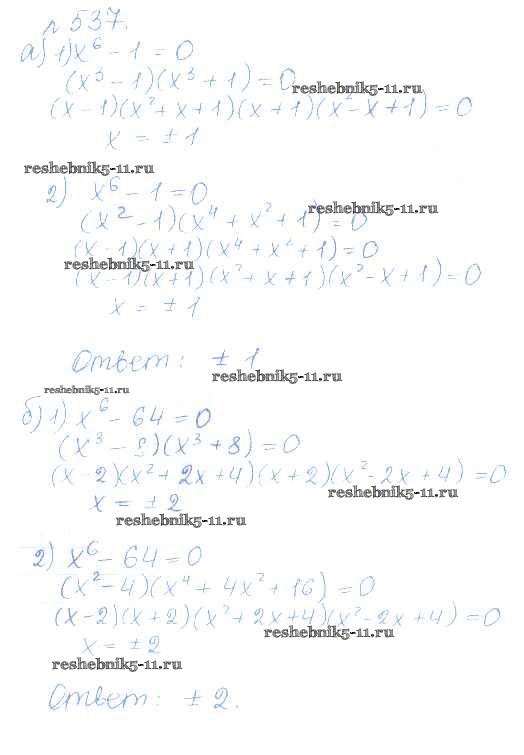 № 537.
а) 1) x⁶ - 1 = 0
(x³ - 1)(x³ + 1) = 0
reshebnik5-11.ru
(x - 1)(x² + x + 1)(x + 1)(x² - x + 1) = 0
x = ± 1
reshebnik5-11.ru
2) x⁶ - 1 = 0
reshebnik5-11.ru
(x² - 1)(x⁴ + x² + 1) = 0
(x - 1)(x + 1)(x⁴ + x² + 1) = 0
reshebnik5-11.ru
(x - 1)(x + 1)(x² + x + 1)(x² - x + 1) = 0
x = ± 1
Ответ: ± 1
reshebnik5-11.ru
reshebnik5-11.ru
б) 1) x⁶ - 64 = 0
(x³ - 8)(x³ + 8) = 0
(x - 2)(x² + 2x + 4)(x + 2)(x² - 2x + 4) = 0
reshebnik5-11.ru
x = ± 2
reshebnik5-11.ru
2) x⁶ - 64 = 0
(x² - 4)(x⁴ + 4x² + 16) = 0
(x - 2)(x + 2)(x² + 2x + 4)(x² - 2x + 4) = 0
reshebnik5-11.ru
x = ± 2
reshebnik5-11.ru
Ответ: ± 2.